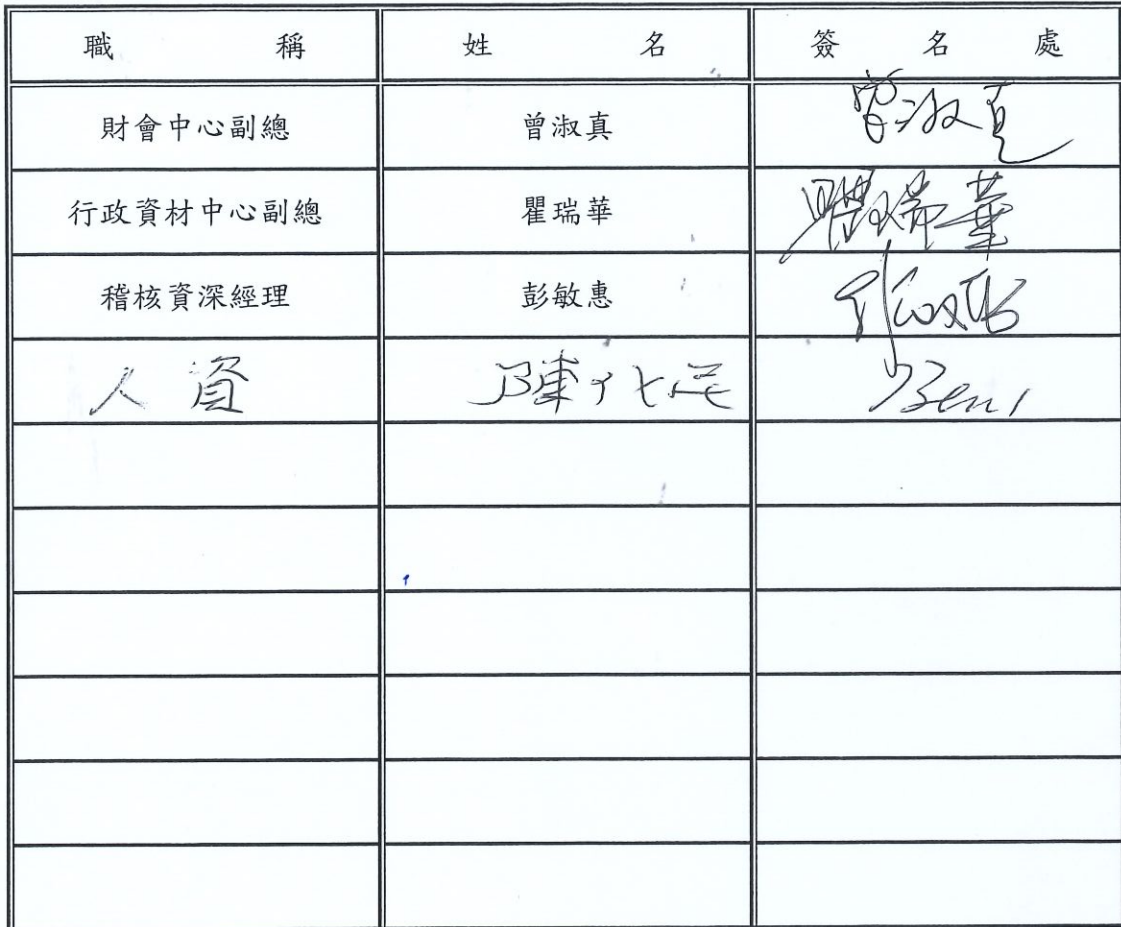 職 稱 姓 名 簽 名 處
財會中心副總 曾淑真 曾淑真
行政資材中心副總 瞿瑞華 瞿瑞華
稽核資深經理 彭敏惠
人資 陳化民